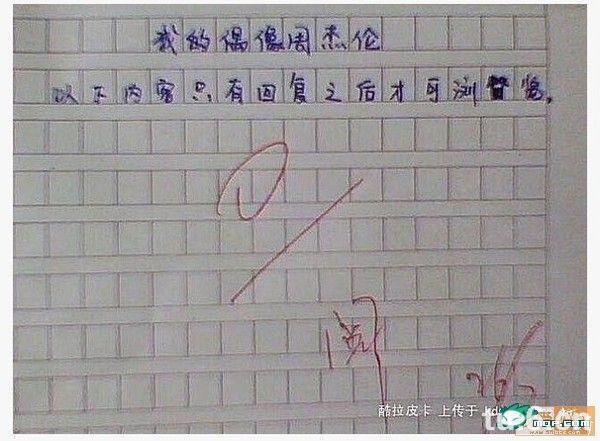 我的偶像周杰伦
以下内容只有回复之后才可浏览。
阅
酷拉皮卡 上传于